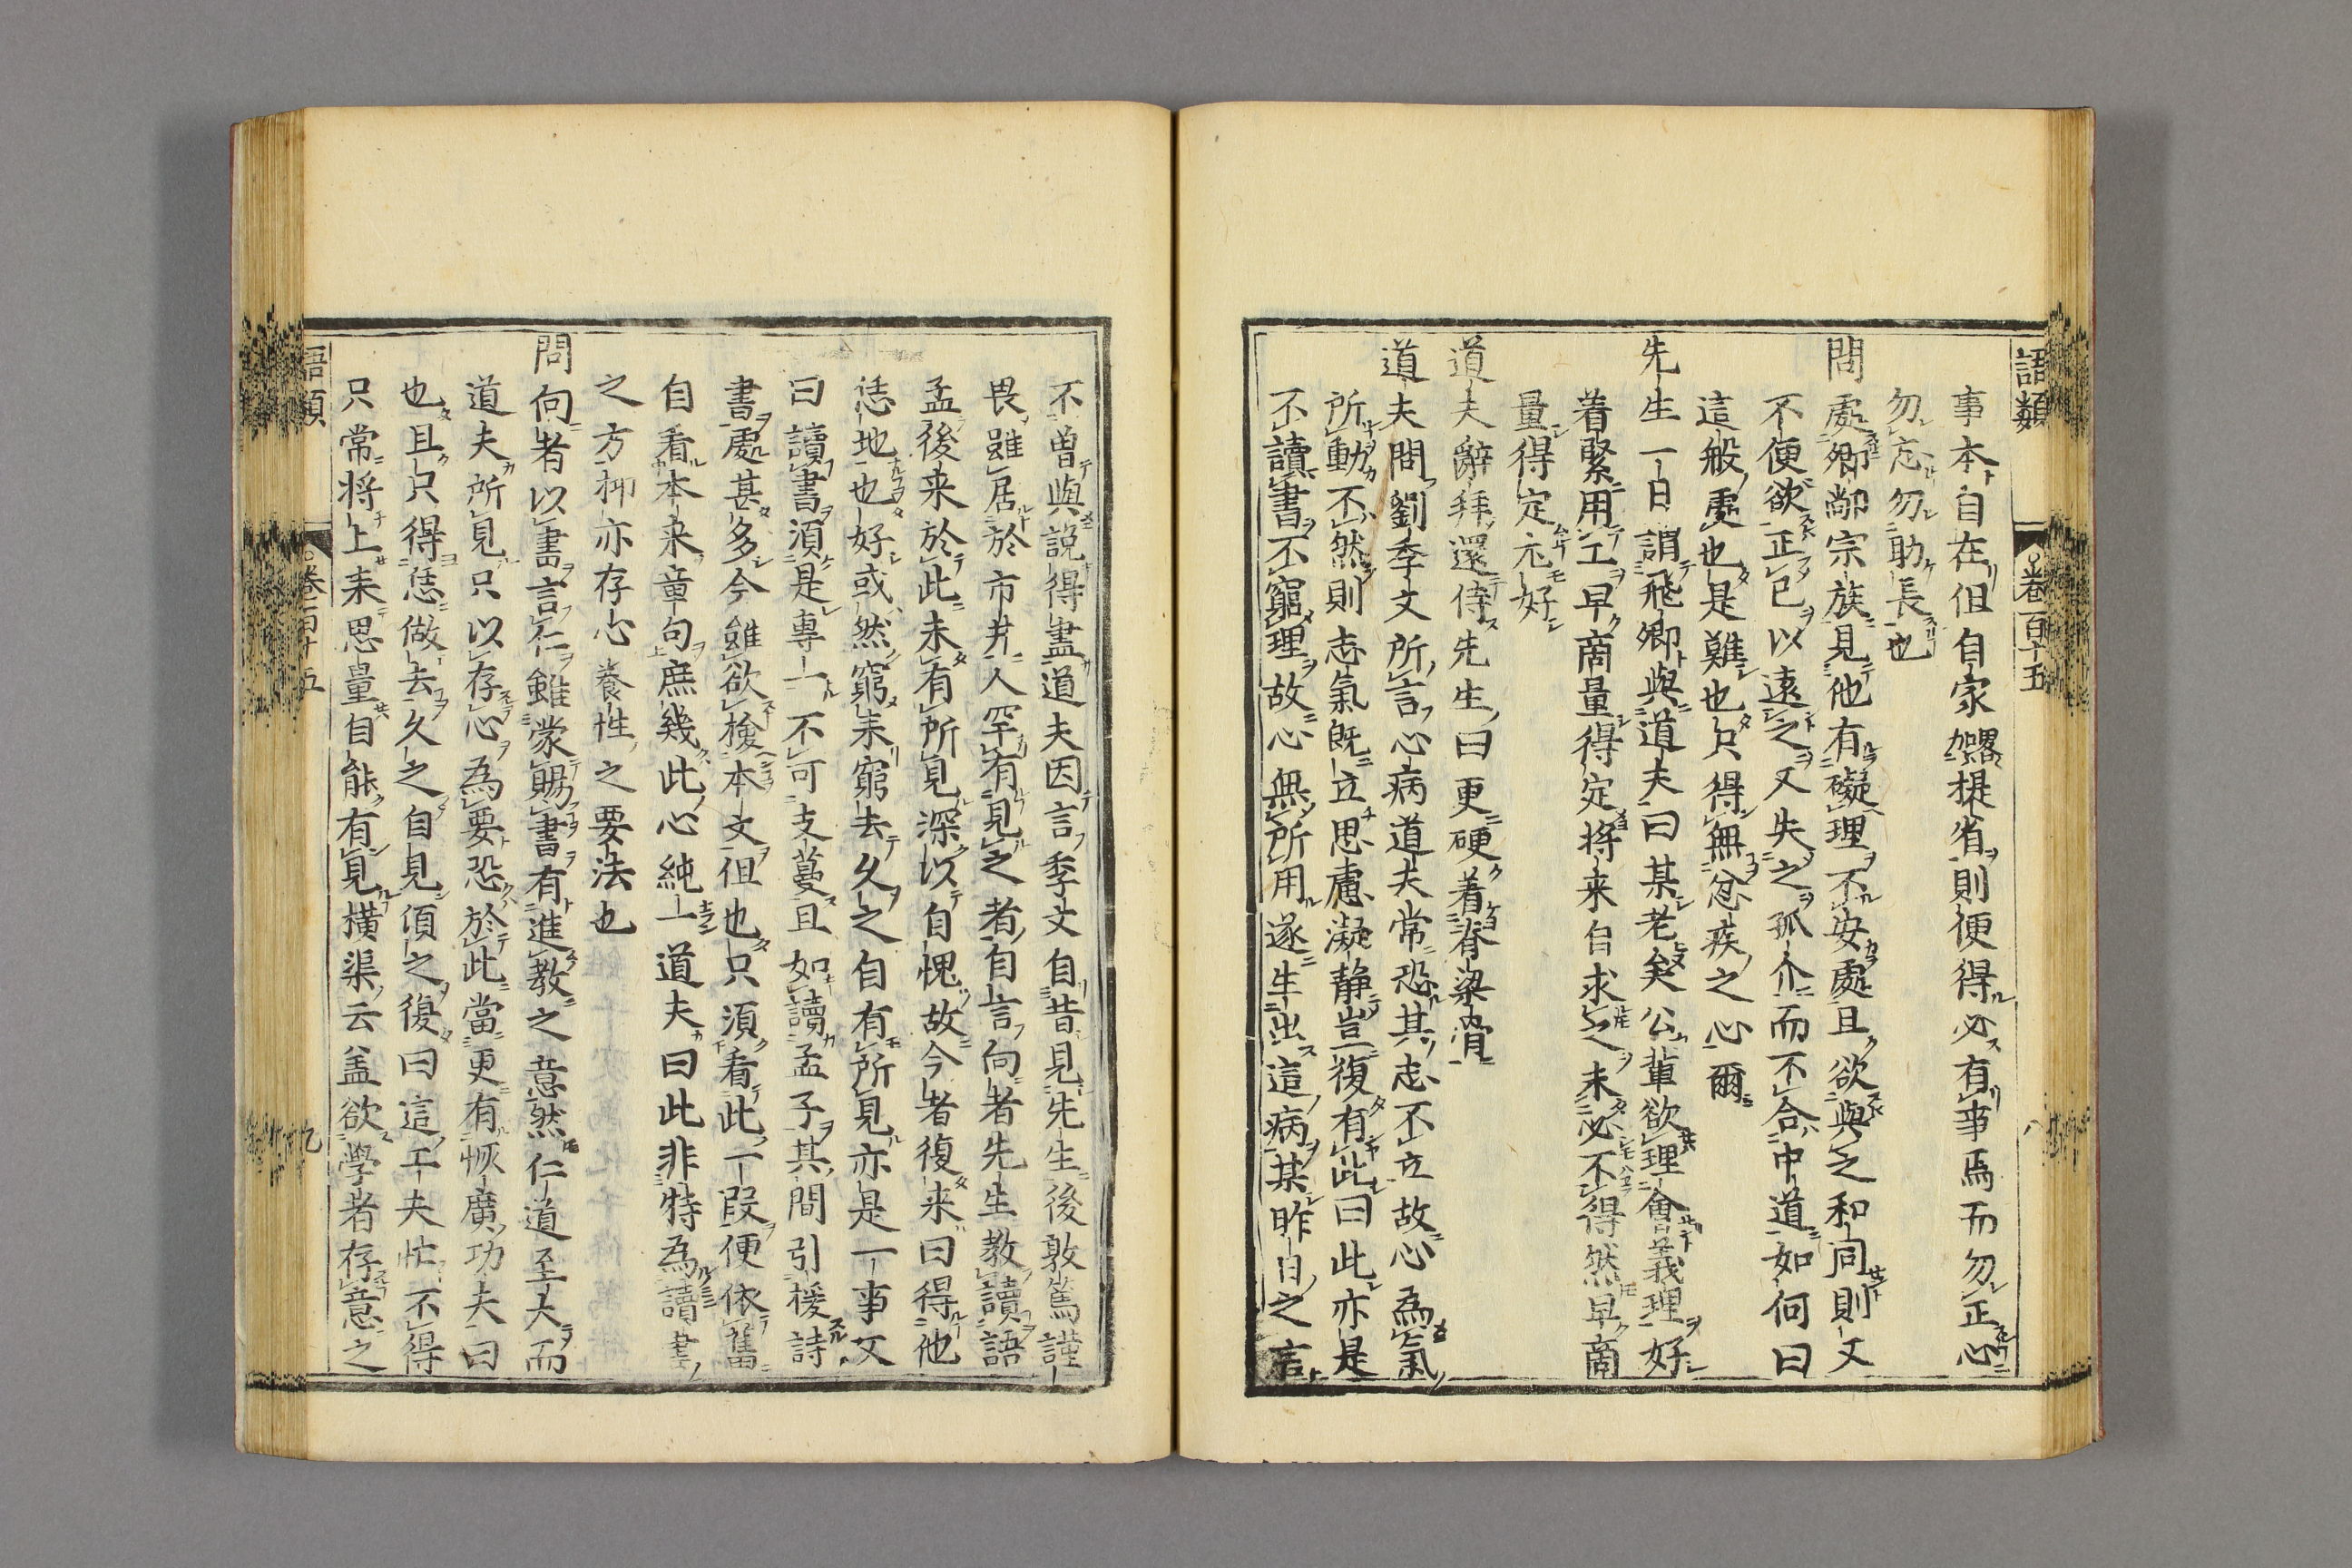 語類　卷百十五　八
事本自在但自家畧加提省則便得必有事焉而勿正心
勿忘勿助長也
問處鄉鄰宗族見他有礙理不安處且欲與之和同則又
不便欲正已以遠之又失之孤介而不合中道如何曰
這般處也是難也只得無忿疾之心爾
先生一日謂飛卿與道夫曰某老矣公輩欲理會義理好
着緊用工早商量得定將来自求之未必不得然早商
量得定尤好
道夫辭拜還侍先生曰更硬着脊梁骨
道夫問劉季文所言心病道夫常恐其志不立故心為氣
所動不然則志氣既立思慮凝静豈復有此曰此亦是
不讀書不窮理故心無所用遂生出這病某昨日之言
不曽與説得盡道夫因言季文自昔見先生後敦篤謹
畏雖居於市井人罕有見之者自言向者先生教讀語
孟後来於此未有所見深以自愧故今者復来曰得他
恁地也好或然窮来窮去久之自有所見亦是一事又
曰讀書須是專一不可支蔓且如讀孟子其間引援詩
書處甚多今雖欲檢本文但也只須看此一段便依舊
自看本来章句庶幾此心純一道夫曰此非特為讀書
之方抑亦存心養性之要法也
問向者以書言仁雖蒙賜書有進教之意然仁道至大而
道夫所見只以存心為要恐於此當更有恢廣功夫曰
也且只得恁做去久之自見頃之復曰這工夫忙不得
只常將上来思量自能有見横渠云盖欲學者存意之
語類　卷百十五　九